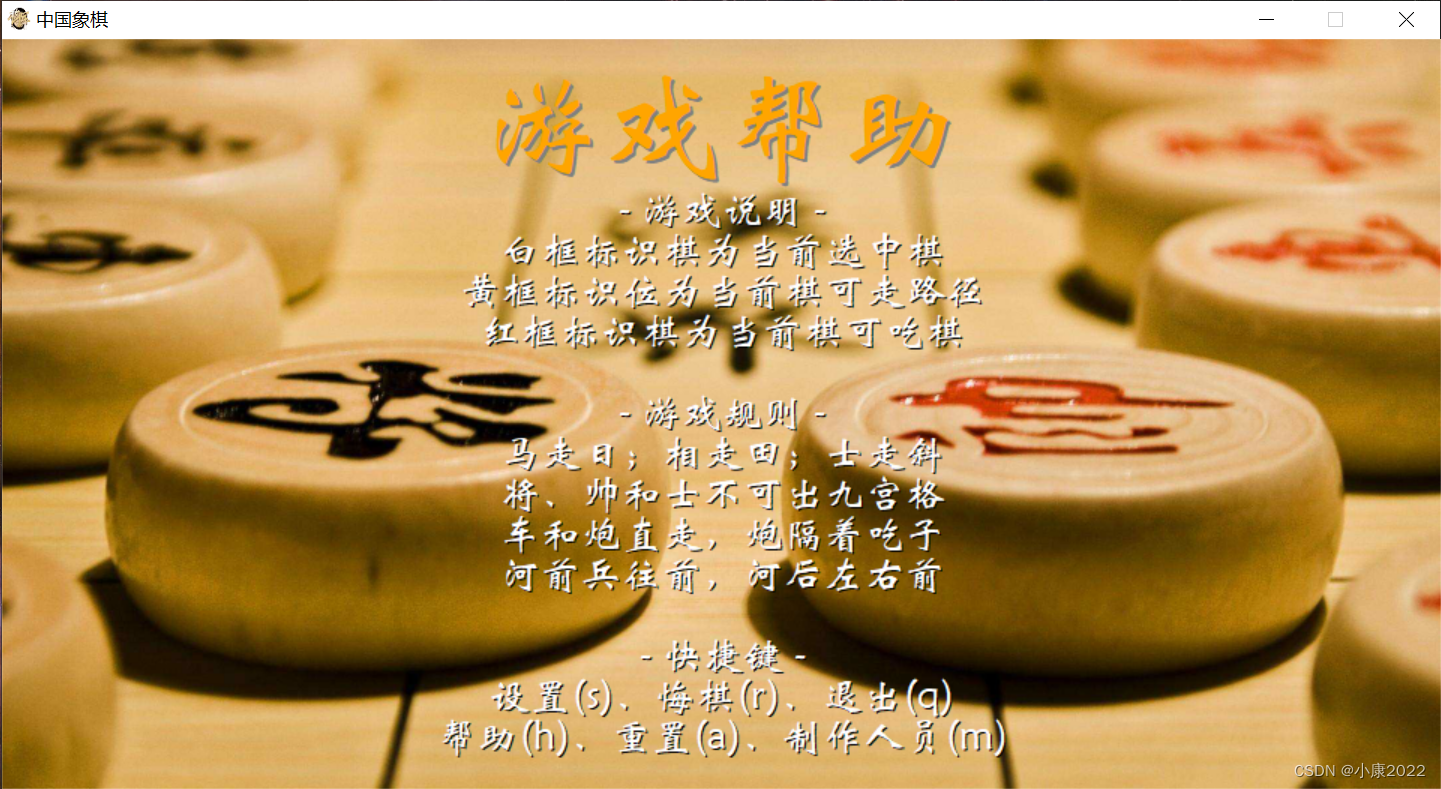 中国象棋
游戏帮助
- 游戏说明 -
白框标识棋为当前选中棋
黄框标识位为当前棋可走路径
红框标识棋为当前棋可吃棋
- 游戏规则 -
马走日；相走田；士走斜
将、帅和士不可出九宫格
车和炮直走，炮隔着吃子
河前兵往前，河后左右前
- 快捷键 -
设置(s)、悔棋(r)、退出(q)
帮助(h)、重置(a)、制作人员(m)
CSDN @小康2022